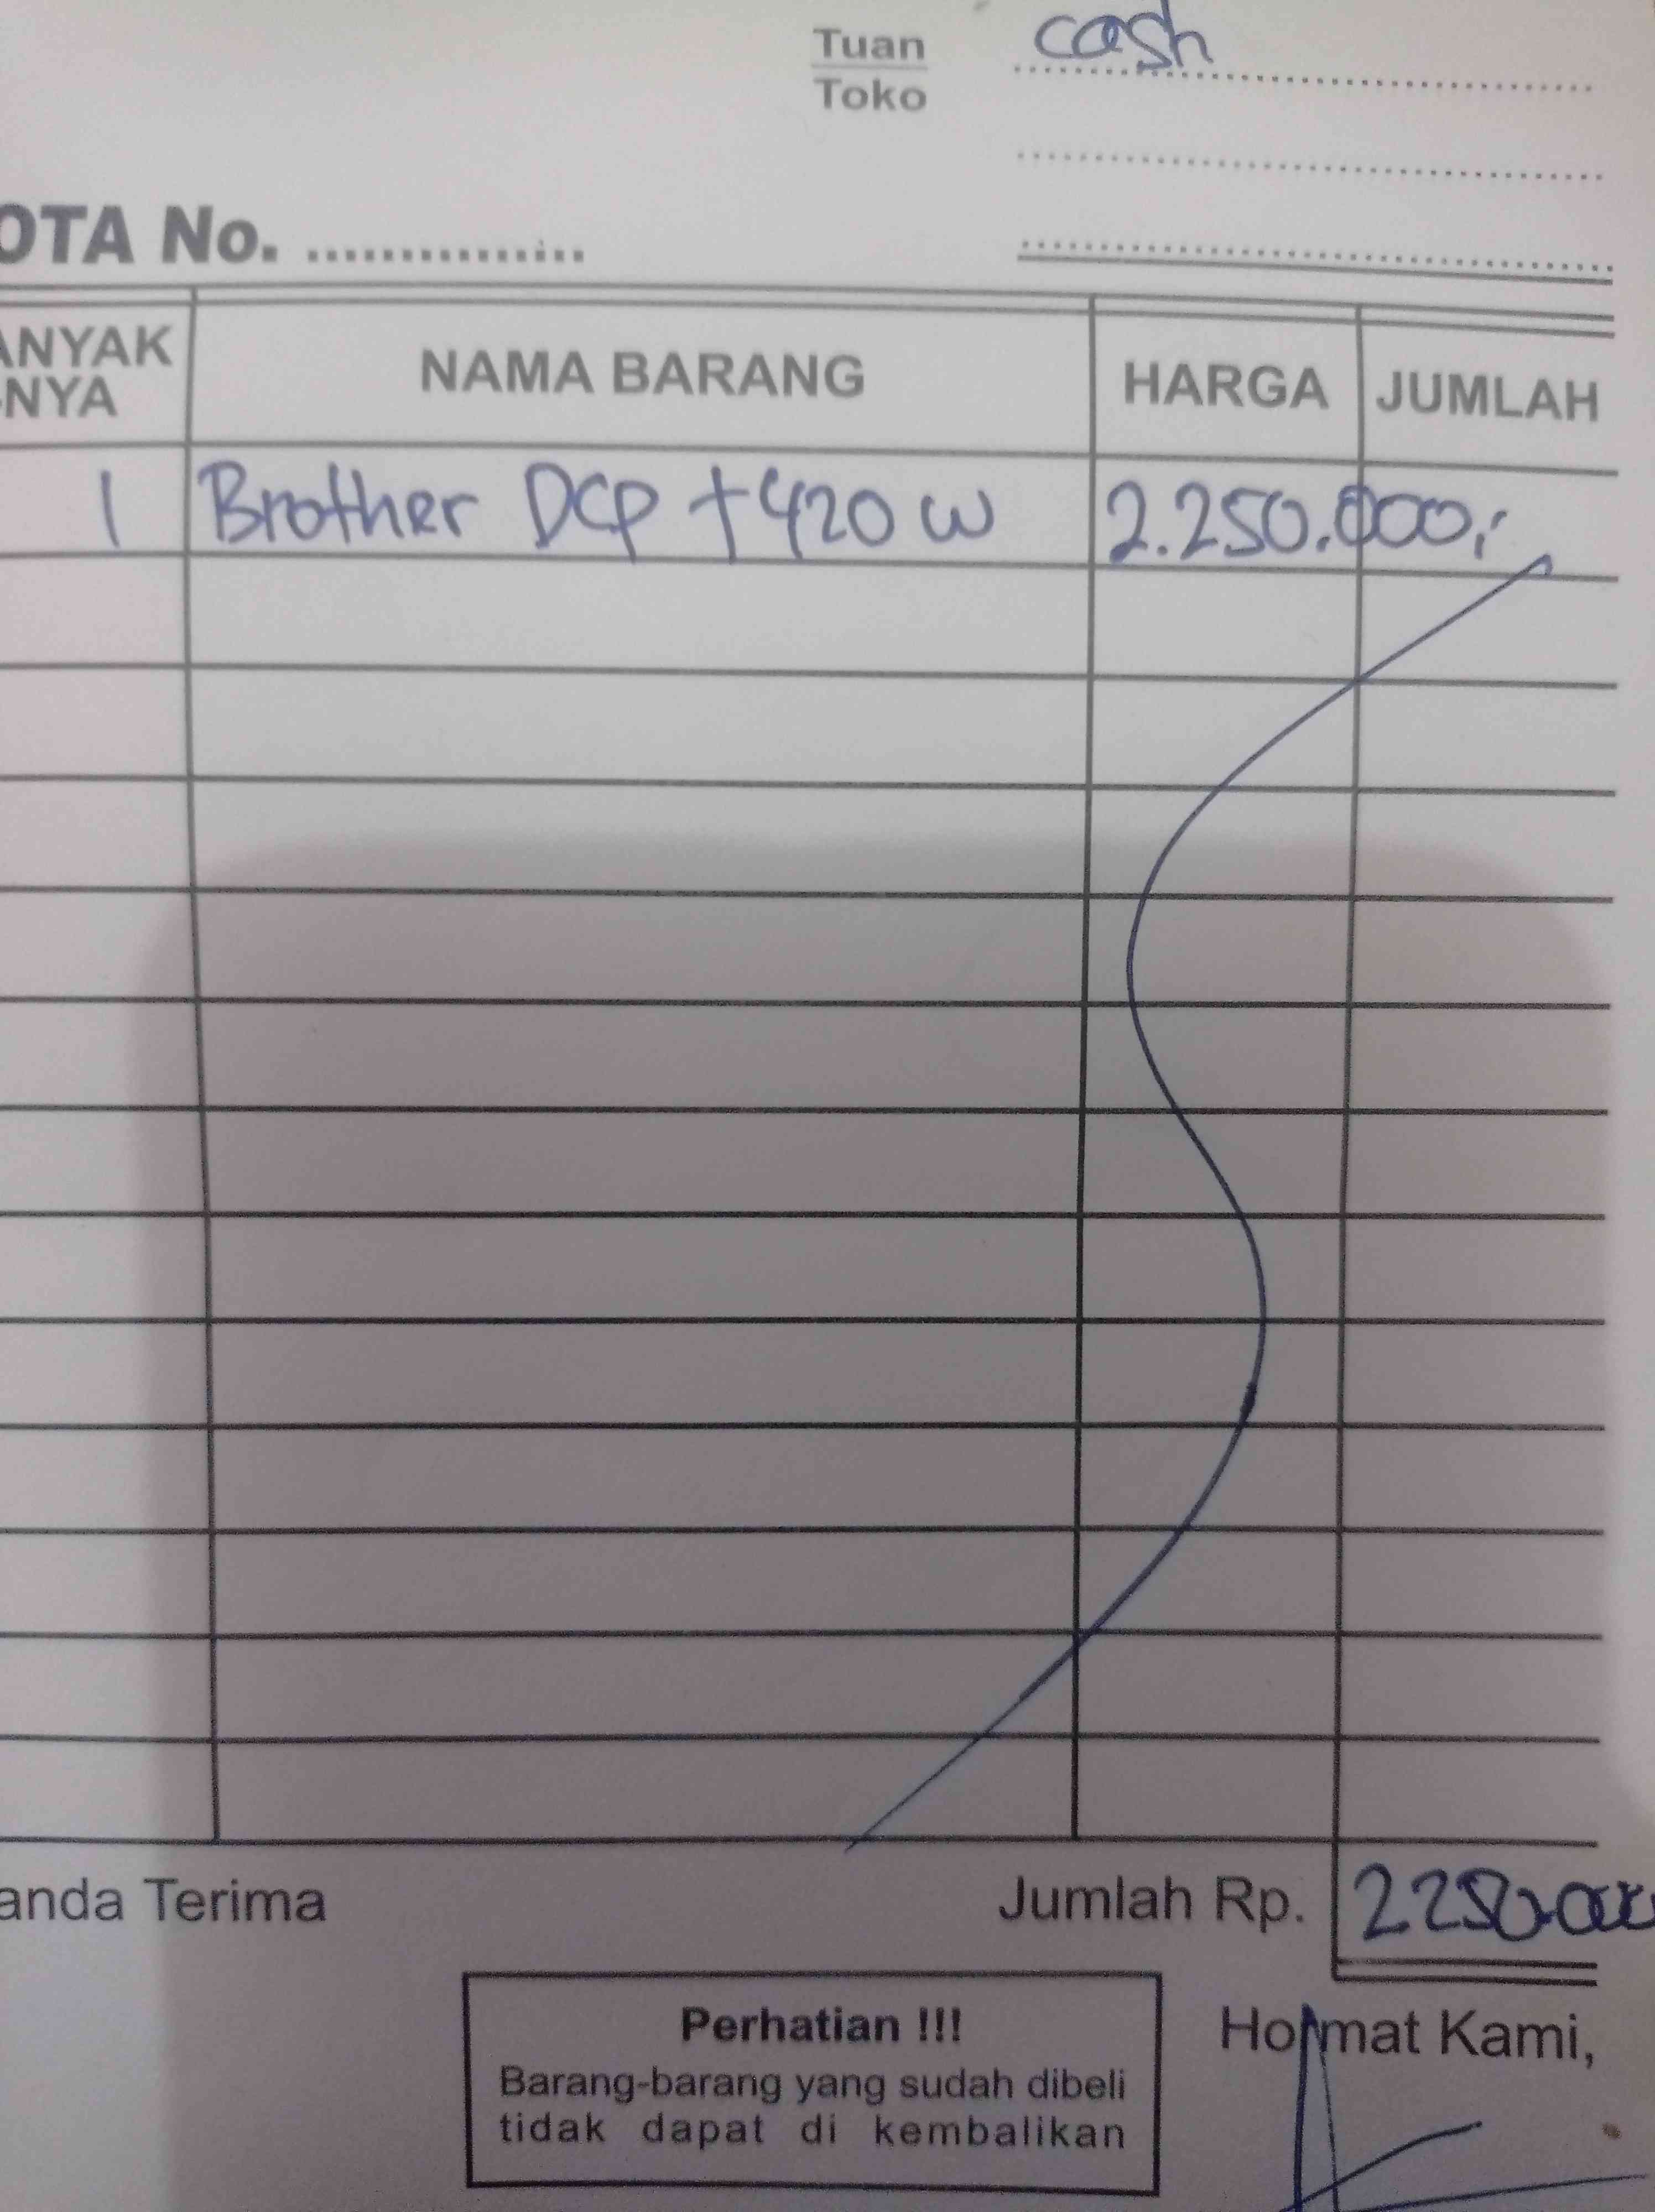 Tuan cash
Toko
OTA No. ................
ANYAK NAMA BARANG HARGA JUMLAH
-NYA
1 Brother DCP T420 W 2.250.000,-
anda Terima Jumlah Rp. 2250.000
Perhatian !!! Hormat Kami,
Barang-barang yang sudah dibeli
tidak dapat di kembalikan